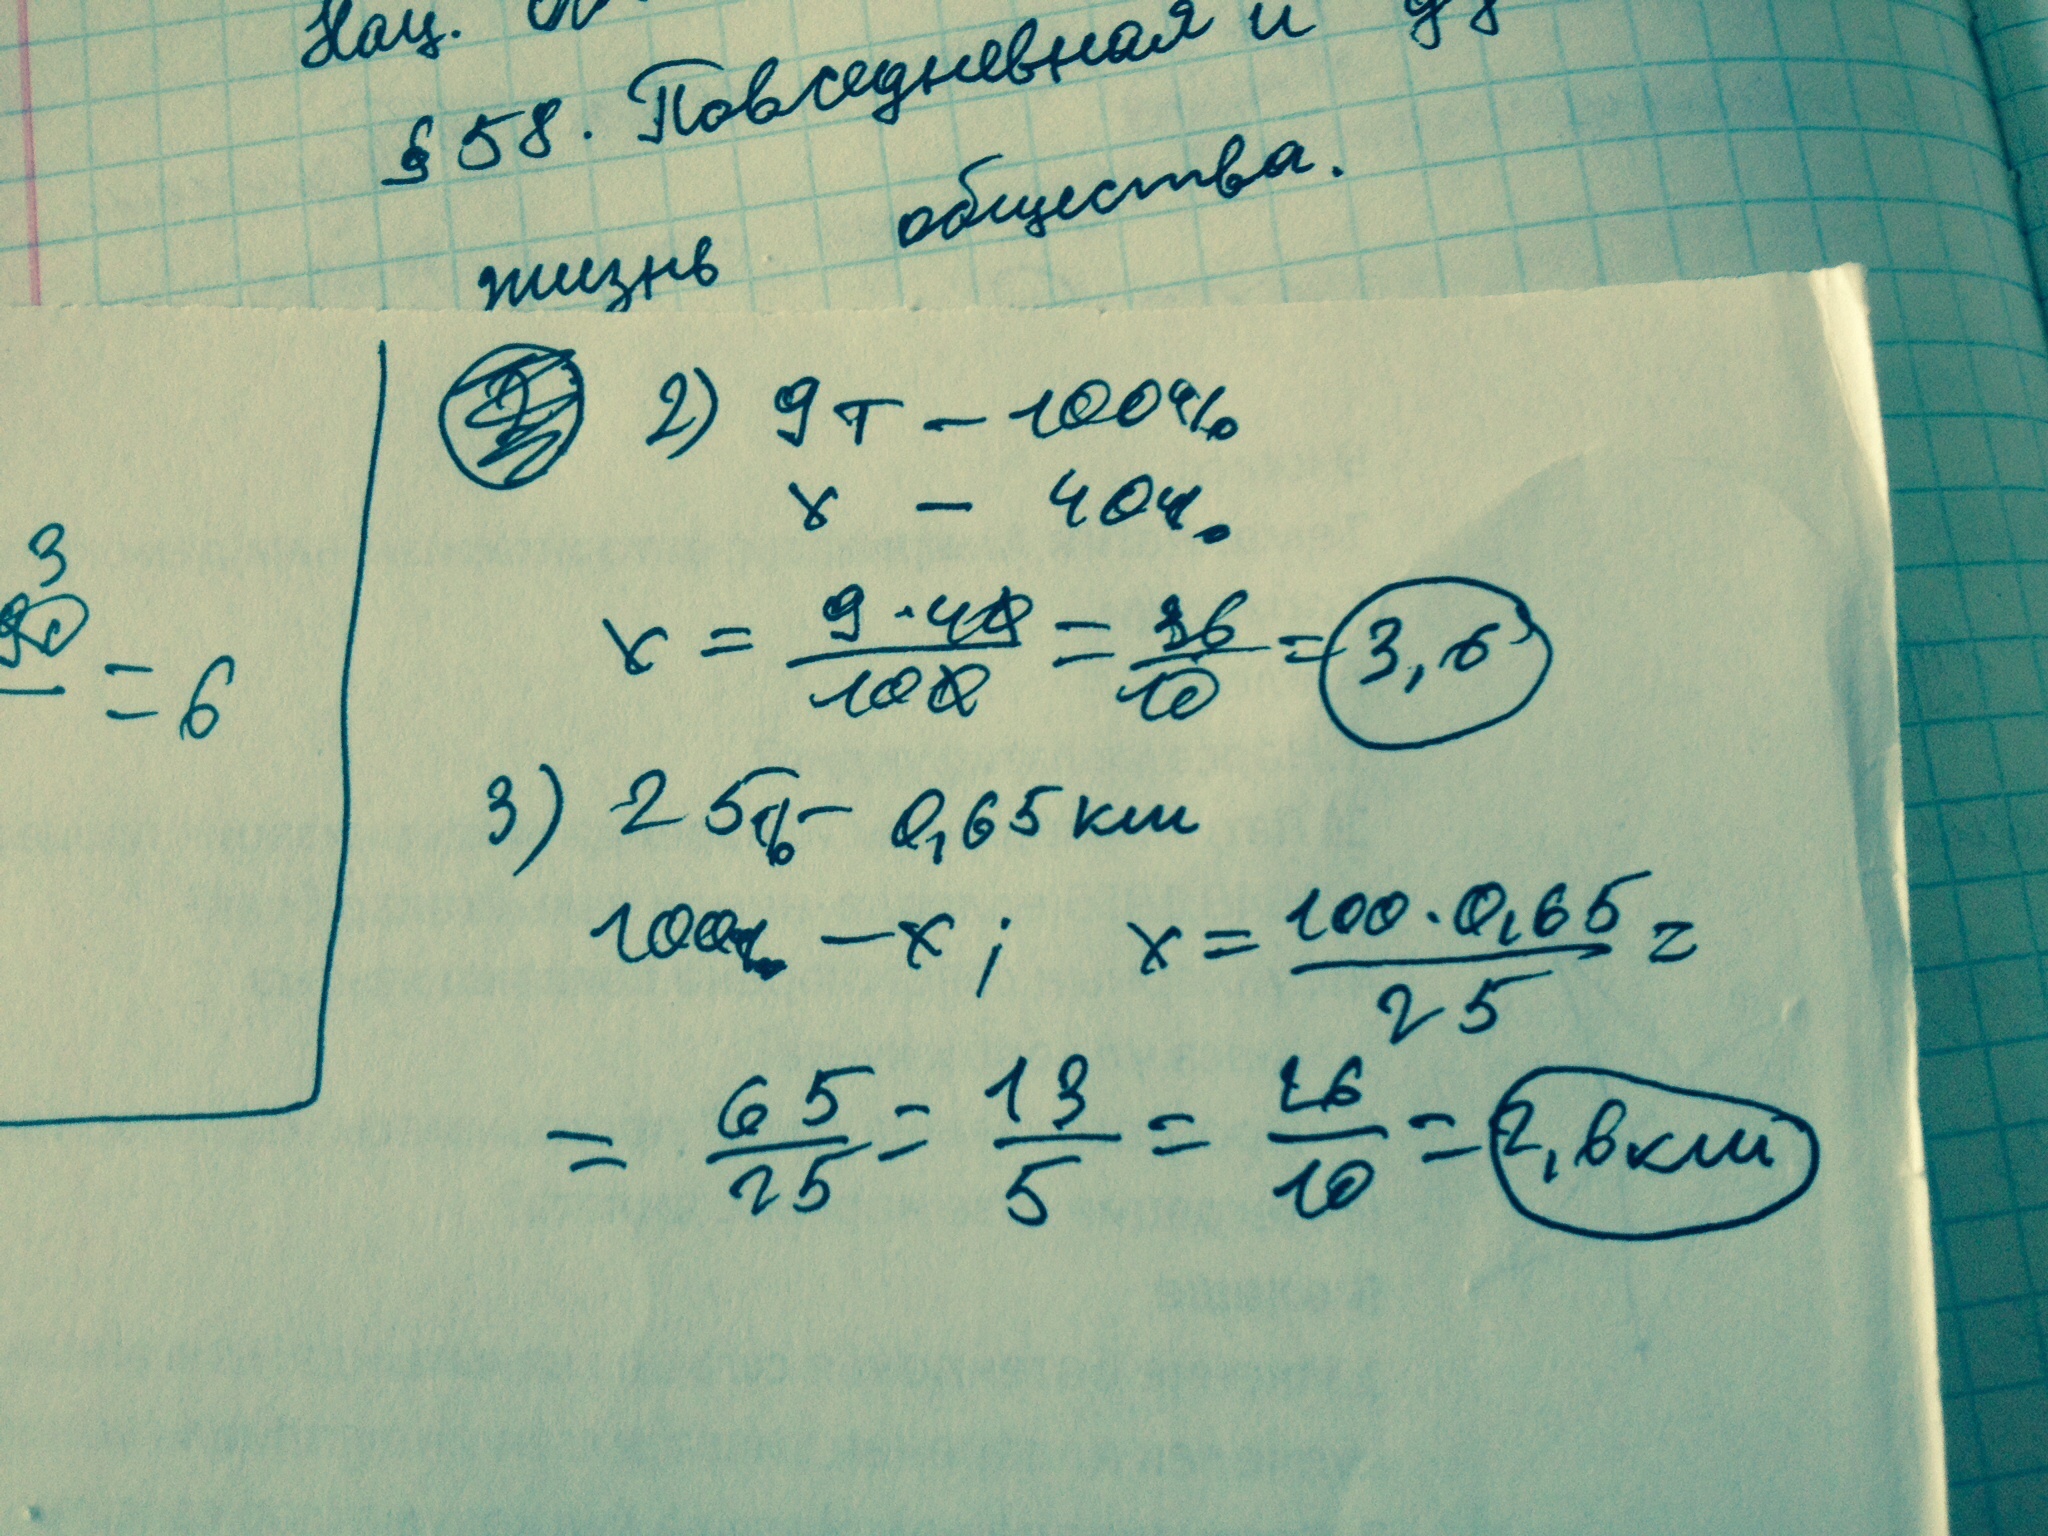 Нац.
§ 58. Повседневная и
жизнь общества.
3
90
= 6
2) 9т – 100%
х – 40%
х = 9·40/100 = 36/10 = 3,6
3) 25% – 0,65 км
100% – х ; х = 100·0,65/25 =
= 65/25 = 13/5 = 26/10 = 2,6 км